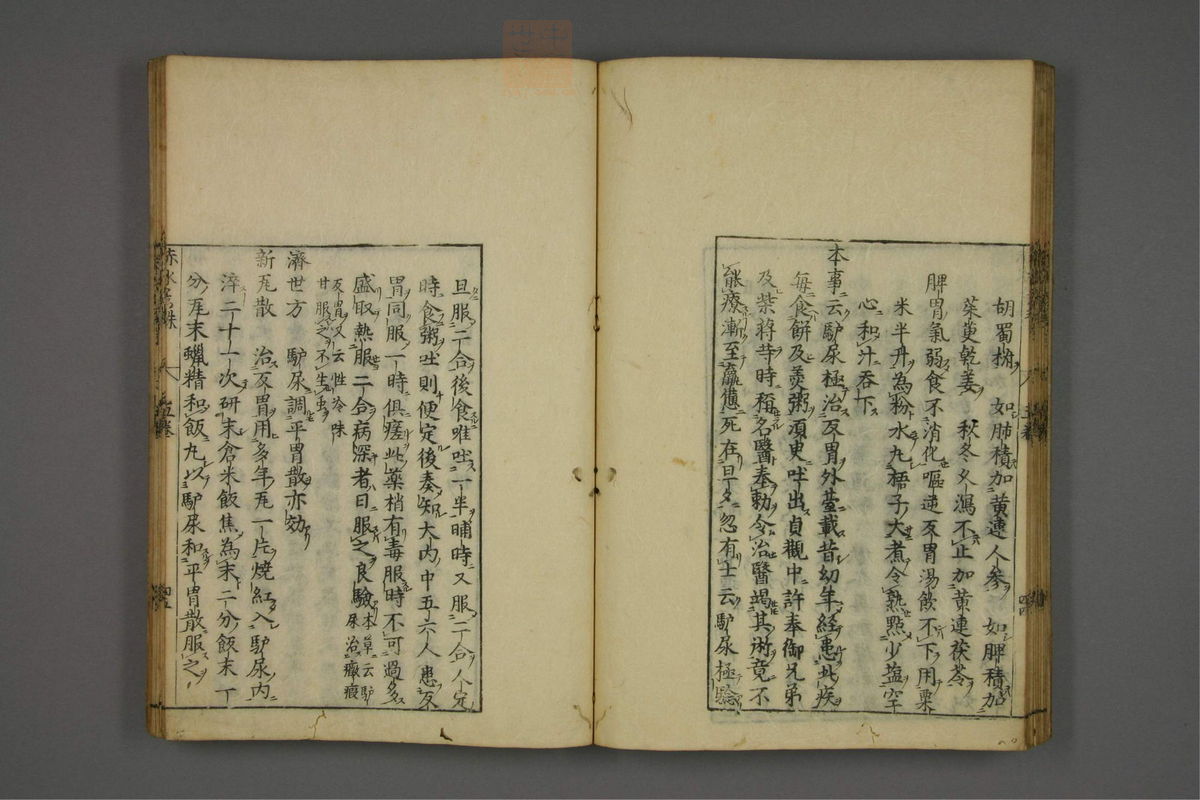 胡蜀椒　如肺積加黄連人參　如脾積加
茱萸乾姜　秋冬久瀉不止加黄連茯苓
脾胃氣弱食不消化嘔逆反胃湯飲不下用粟
米半升為粉水丸梧子大煮令熟點少塩空
心和汁吞下
本事云驢尿極治反胃外臺載昔幼年經患此疾
每食餅及羮粥須臾吐出貞觀中許奉御兄弟
及柴蔣等時稱名醫奉勅令治醫竭其術竟不
能療漸至羸憊死在旦夕忽有士云驢尿極驗
旦服二合後食唯吐一半晡時又服二合人定
時食粥吐則便定後奏知大内中五六人患反
胃同服一時俱瘥此藥梢有毒服時不可過多
盛取熱服二合病深者日服之良驗本草云驢
尿治癥瘕
反胃又云性冷味
甘服之不生虫
濟世方　驢尿調平胃散亦効
新瓦散　治反胃用多年瓦一片燒紅入驢尿内
淬二十一次研末倉米飯焦為末二分飯末丁
分瓦末蠟精和飯丸以驢尿和平胃散服之
赤水玄珠
五卷